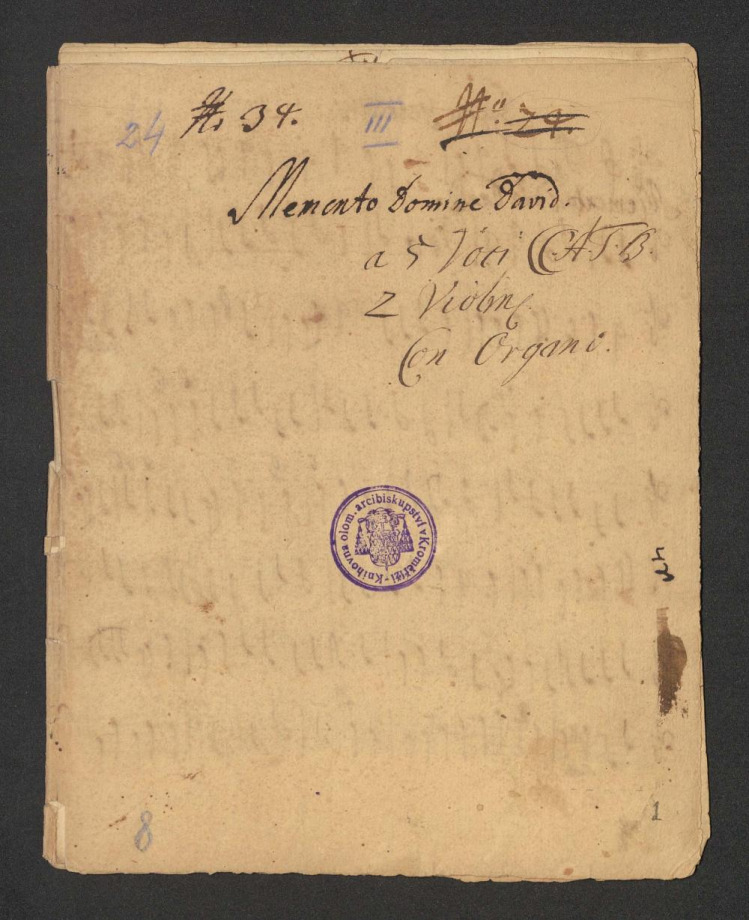 24 N. 34. III N.° 74.
Memento Domine David.
a 5 Voci CCATB.
2 Violin
Con Organo.
Knihovna olom. arcibiskupství v Kroměříži -
8
1